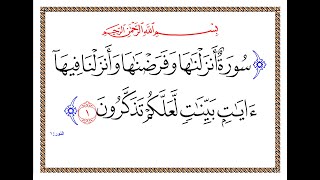 بِسْمِ اللَّهِ الرَّحْمَٰنِ الرَّحِيمِ
سُورَةٌ أَنزَلْنَٰهَا وَفَرَضْنَٰهَا وَأَنزَلْنَا فِيهَآ
ءَايَٰتٍۭ بَيِّنَٰتٍ لَّعَلَّكُمْ تَذَكَّرُونَ ١
النور: ١